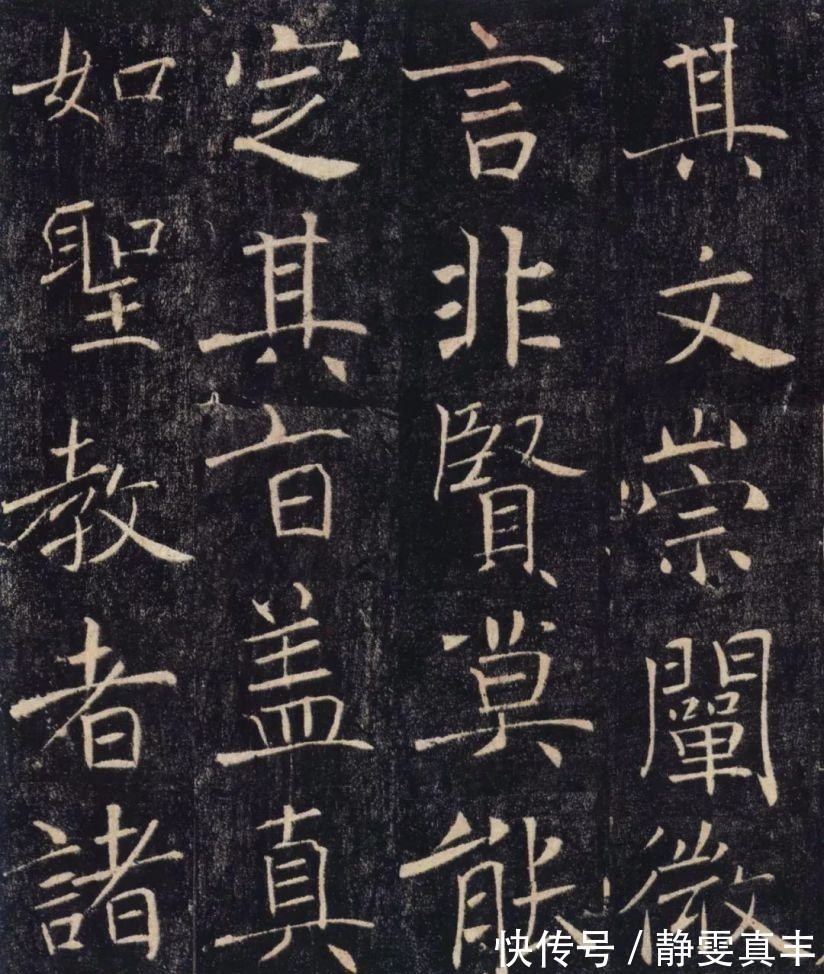 其文崇闡微
言非賢莫能
定其旨盖真
如聖教者諸
快传号/静雯真丰